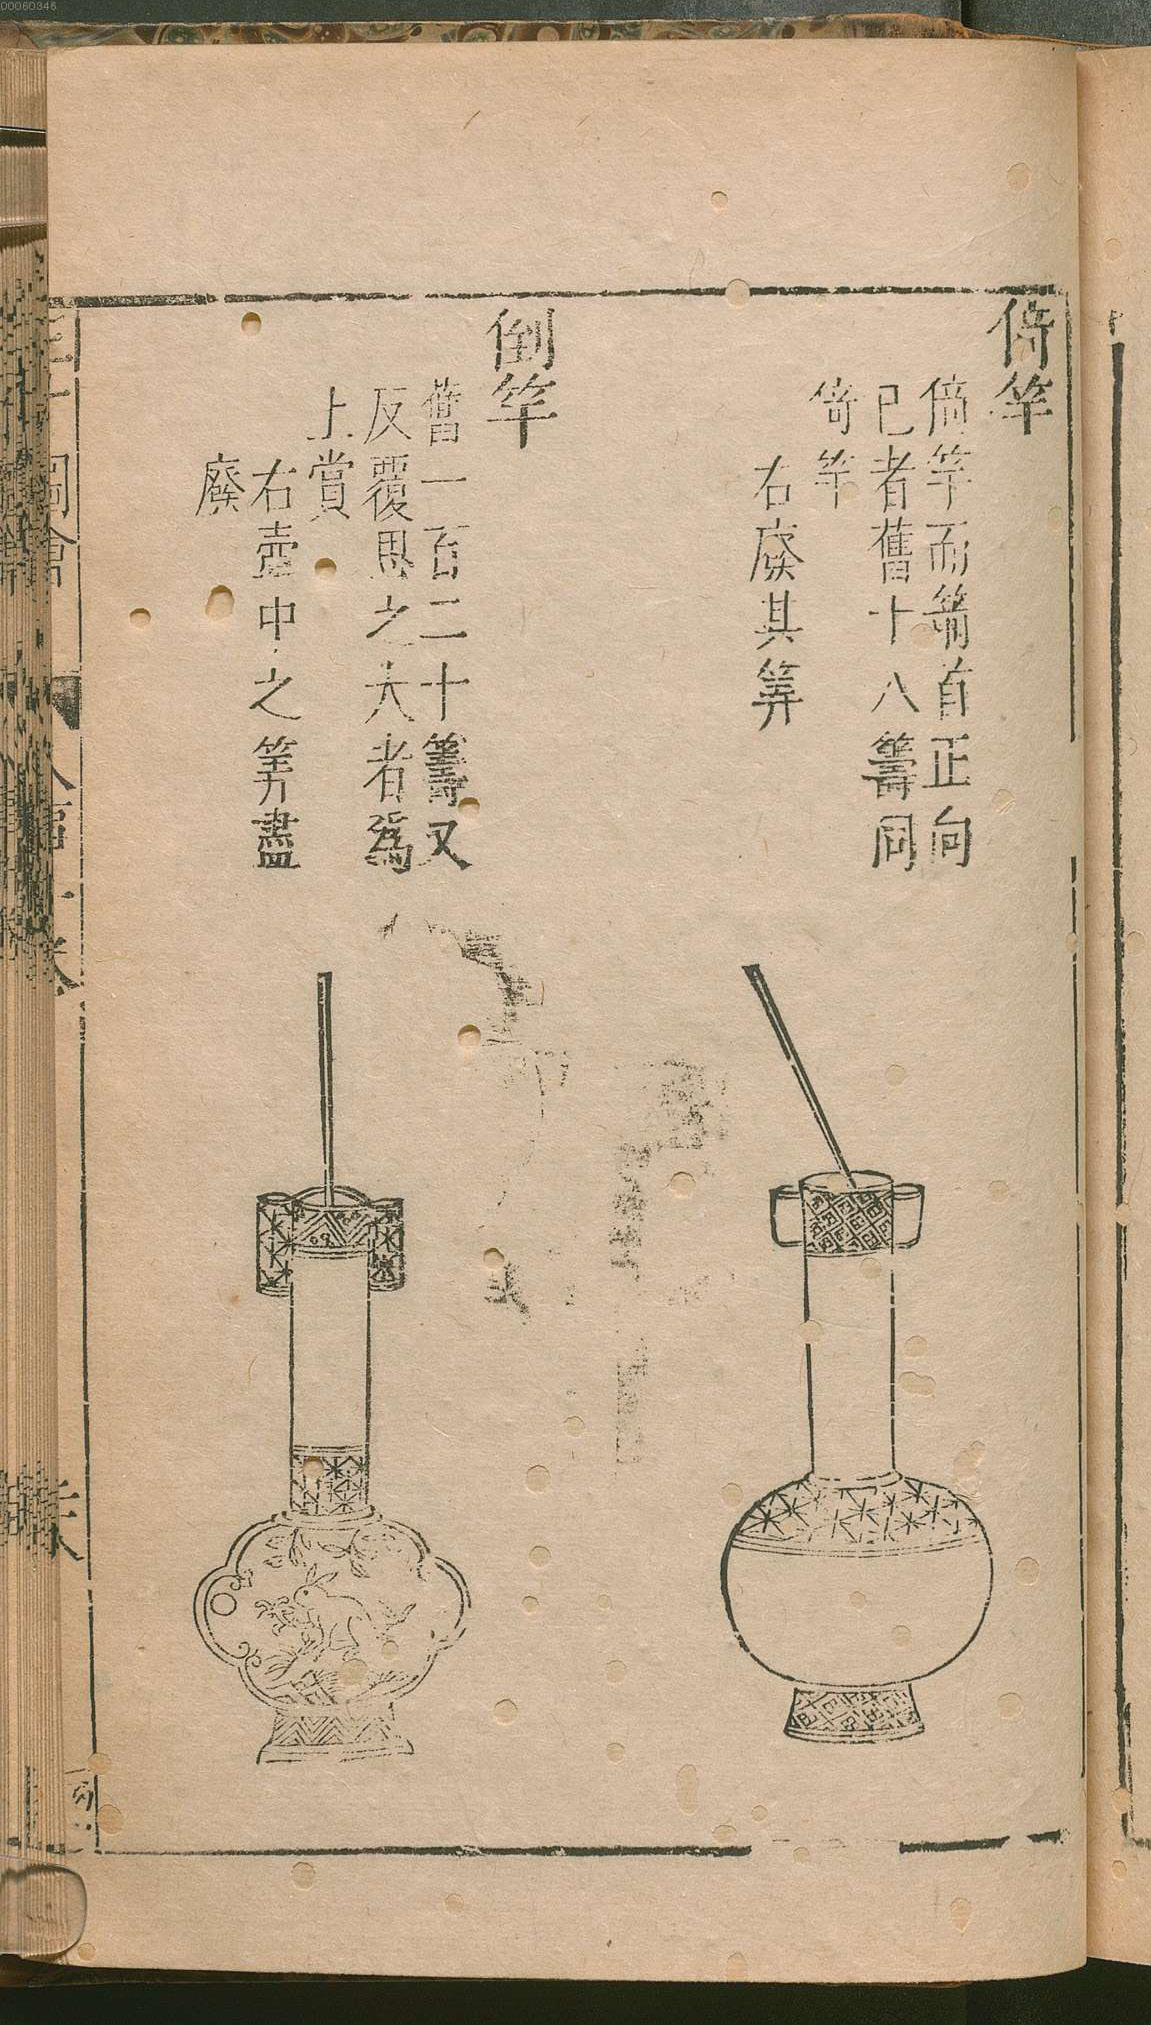 倚竿
倚竿而箭首正向
已者舊十八籌同
倚竿
右廢其筭
倒竿
舊一百二十籌又
反覆思之大者為
上賞
右壺中之筭盡
廢
00060346